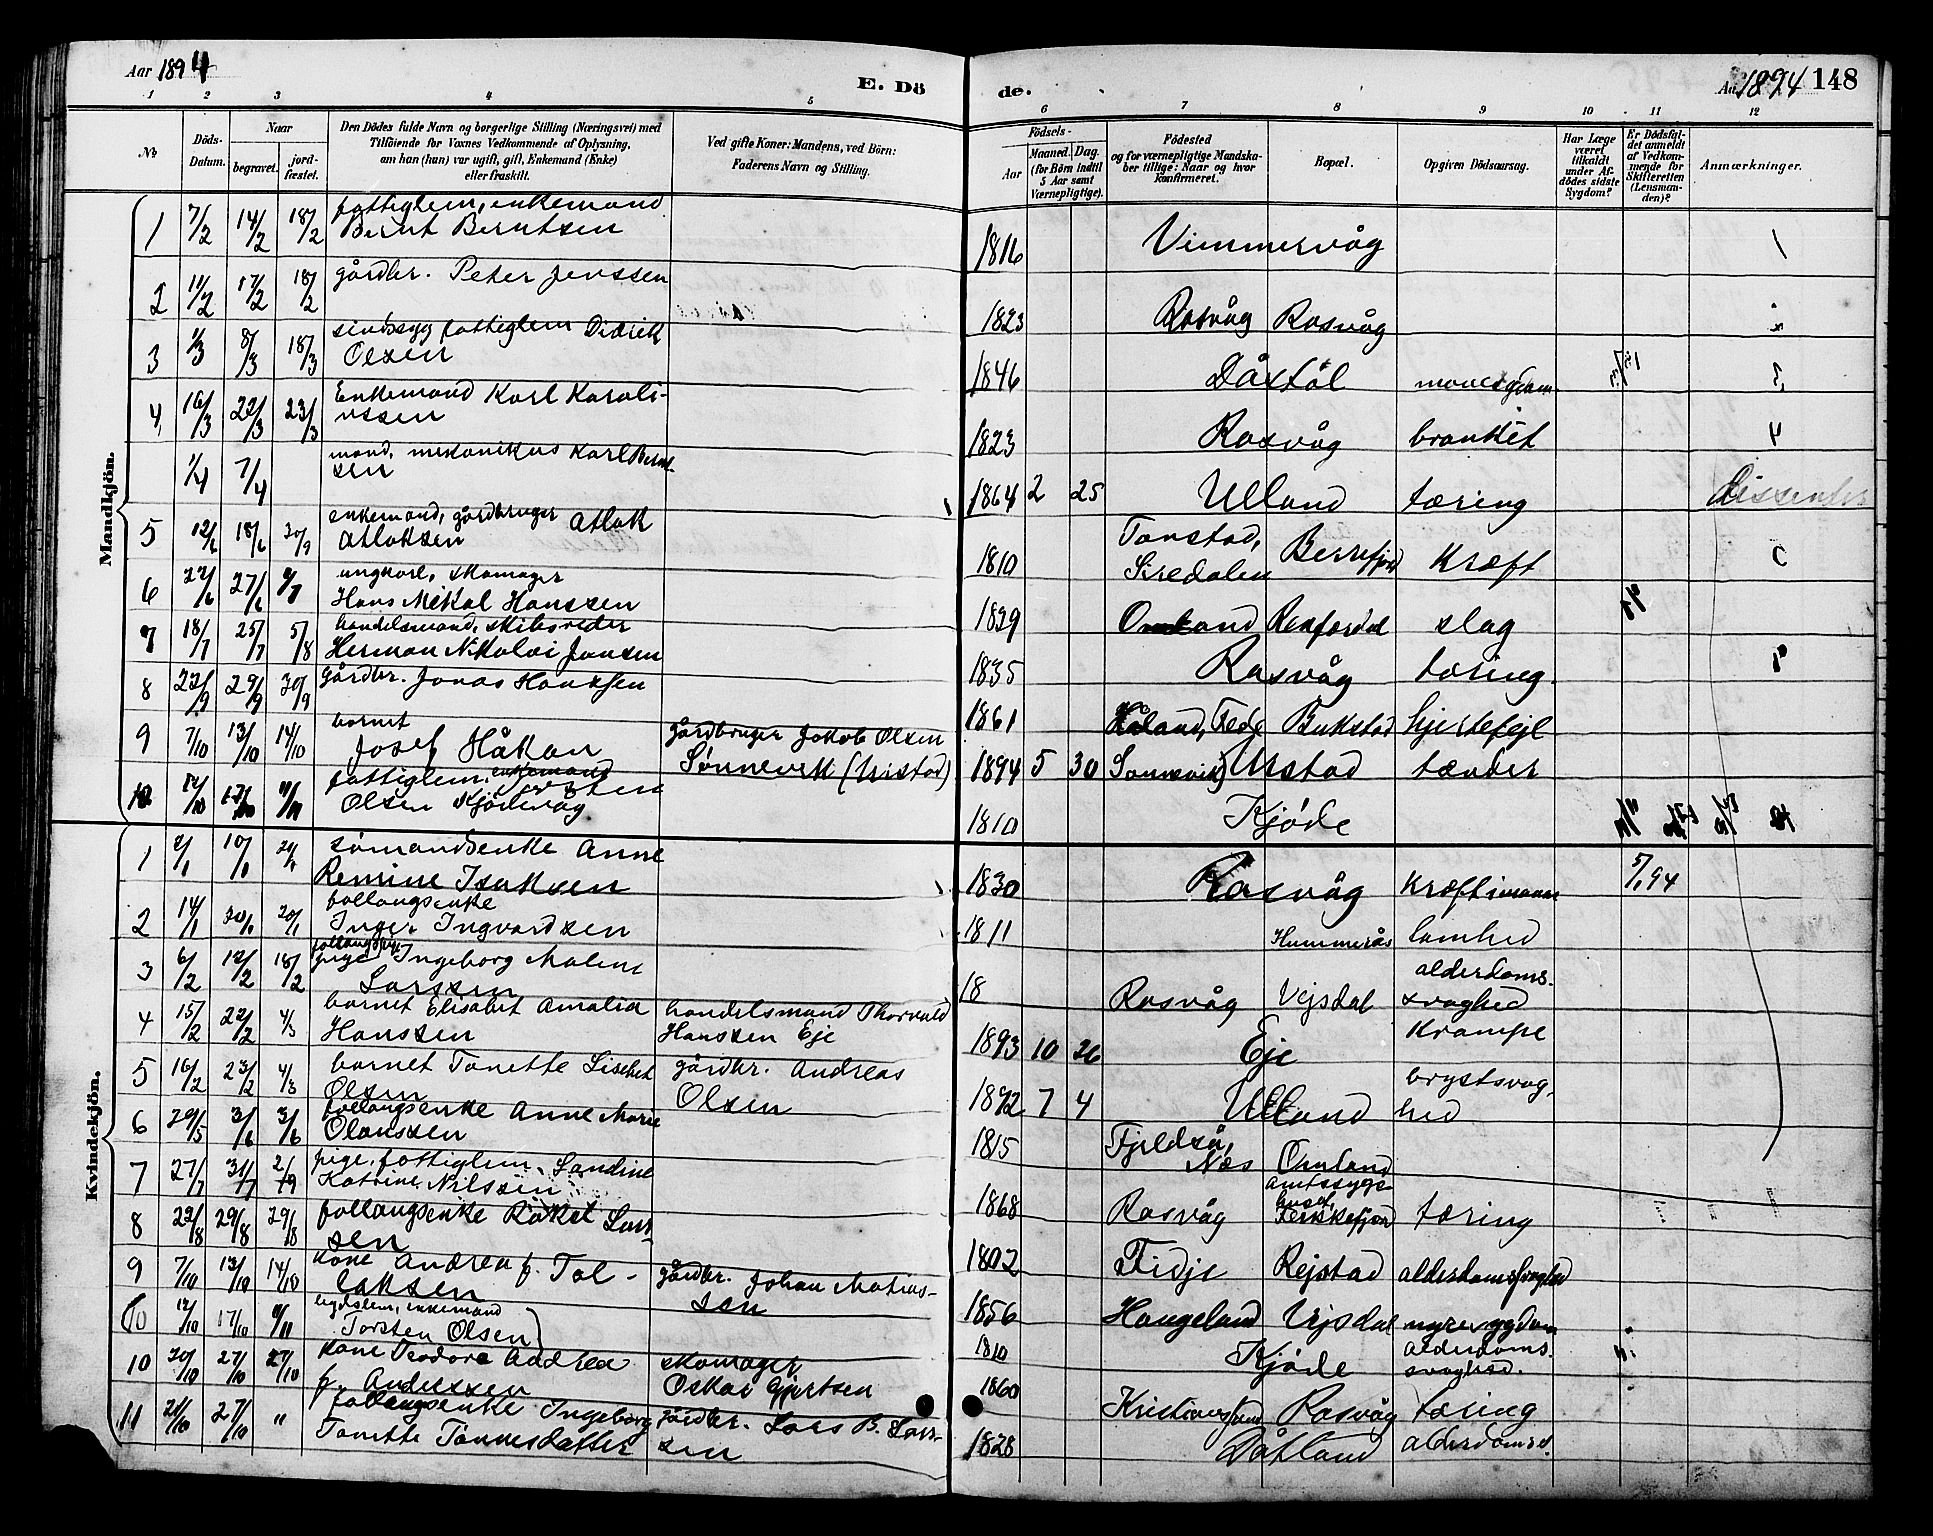 Aar 1894
E. Dö
de.
Aar 1894 148
1 2 3 4 5 6 7 8 9 10 11 12
No.
Döds-Datum.
Naar
begravet.
jord-fæstet.
Den Dödes fulde Navn og borgerlige Stilling (Næringsvei) med
Tilföiende for Voxnes Vedkommende af Oplysning,
om han (hun) var ugift, gift, Enkemand (Enke)
eller fraskilt.
Ved gifte Koner: Mandens, ved Börn:
Faderens Navn og Stilling.
Födsels-
Aar
Maaned. Dag.
(for Börn indtil
5 Aar samt
Værnepligtige).
Födested
og for værnepligtige Mandska-
ber tillige: Naar og hvor
konfirmeret.
Bopæl.
Opgiven Dödsaarsag.
Har Læge
været
tilkaldt
under Af-
dödes sidste
Sygdom?
Er Dödsfal-
det anmeldt
af Vedkom-
mende for
Skifteretten
(Lensman-
den)?
Anmærkninger.
Mandkjön.
1 7/2 14/2 18/2 fattiglem, enkemand
Bernt Berntsen 1816 Vimmervåg 1
2 11/2 17/2 18/2 gårdbr. Peter Jenssen 1823 Rasvåg Rasvåg
3 1/3 8/3 18/3 sindssyg fattiglem Didrik
Olsen 1846 Dåstöl
4 16/3 22/3 23/3 Enkemand Karl Karoli-
ussen 1823 Rasvåg bronkit 4
1/4 7/4 mand, mekanikus Karl Bernt-
sen 1864 2 25 Ulland tæring dissenter
5 12/6 18/6 30/9 enkemand, gårdbruger Atlak
Atlaksen 1810 Tonstad,
Siredalen Berrefjord Kræft
6 22/6 27/6 ungkarl, skomager
Hans Mikal Hanssen 1839 Omland slag
7 18/7 25/7 5/8 handelsmand, skibsreder
Herman Nikolai Jansen 1835 Rasvåg tæring.
8 22/9 29/9 30/9 gårdbr. Jonas Hanssen 1861 Håland, Feda Bukstad hjertefejl
9 7/10 13/10 14/10 barnet
Josef Håkon gårdbruger Jakob Olsen
Sønnevik (Urstad) 1894 5 30 Sønnevik, Urstad tænder
10 12/10 17/10 11/11 fattiglem, enkemand Torsten
Olsen Kjödevåg 1810 Kjöde
Kvindekjön.
1 10/1 sømandsenke Anne
Remine Isaksen 1830 Rasvåg 5/1 94
2 14/1 20/1 20/1 follaugsenke
Inger Ingvardsen 1811 Hummerås lamhed
3 6/2 12/2 18/2 follaugspige
pige Ingeborg Malene
Larssen 18 Rasvåg Vejsdal alderdoms-
svaghed
4 15/2 22/2 4/3 barnet Elisabet Amalia
Hanssen handelsmand Thorvald
Hanssen Eje 1893 10 26 Eje Krampe
5 16/2 23/2 4/3 barnet Tonette Lisebet
Olsen gårdbr. Andreas
Olsen 1892 7 4 Ulland brystsvag-
hed
6 29/5 3/6 3/6 follaugsenke Anne Marie
Olaussen 1815 Fjeldså,
Næs Omland
7 27/7 31/7 2/9 pige, fattiglem, Sandine
Katrine Nilssen 1868 Rasvåg amtssyge-
huset
Flekkefjord tæring
8 22/8 29/8 29/8 follaugsenke Rakel Lars-
sen 1802 Fidje Rejstad alderdomssvaghed
9 7/10 13/10 14/10 kone Andrea f. Tol-
laksen gårdbr. Johan Matias-
sen 1856 Haugeland Vejsdal nyresygdom
10 12/10 17/10 11/11 legdslem, enkemand
Torsten Olsen 1810 Kjöde alderdoms-
svaghed.
10 20/10 27/10 27/10 kone Teodore Andrea
f. Anderssen skomager
Oskar Gjertsen 1860 Kristianssand Rasvåg tæring
11 21/10 27/10 " follaugsenke Ingeborg
Tonette Tønnesdatter gårdbr. Lars B. Lars-
sen 1828 Dåtland alderdomss.